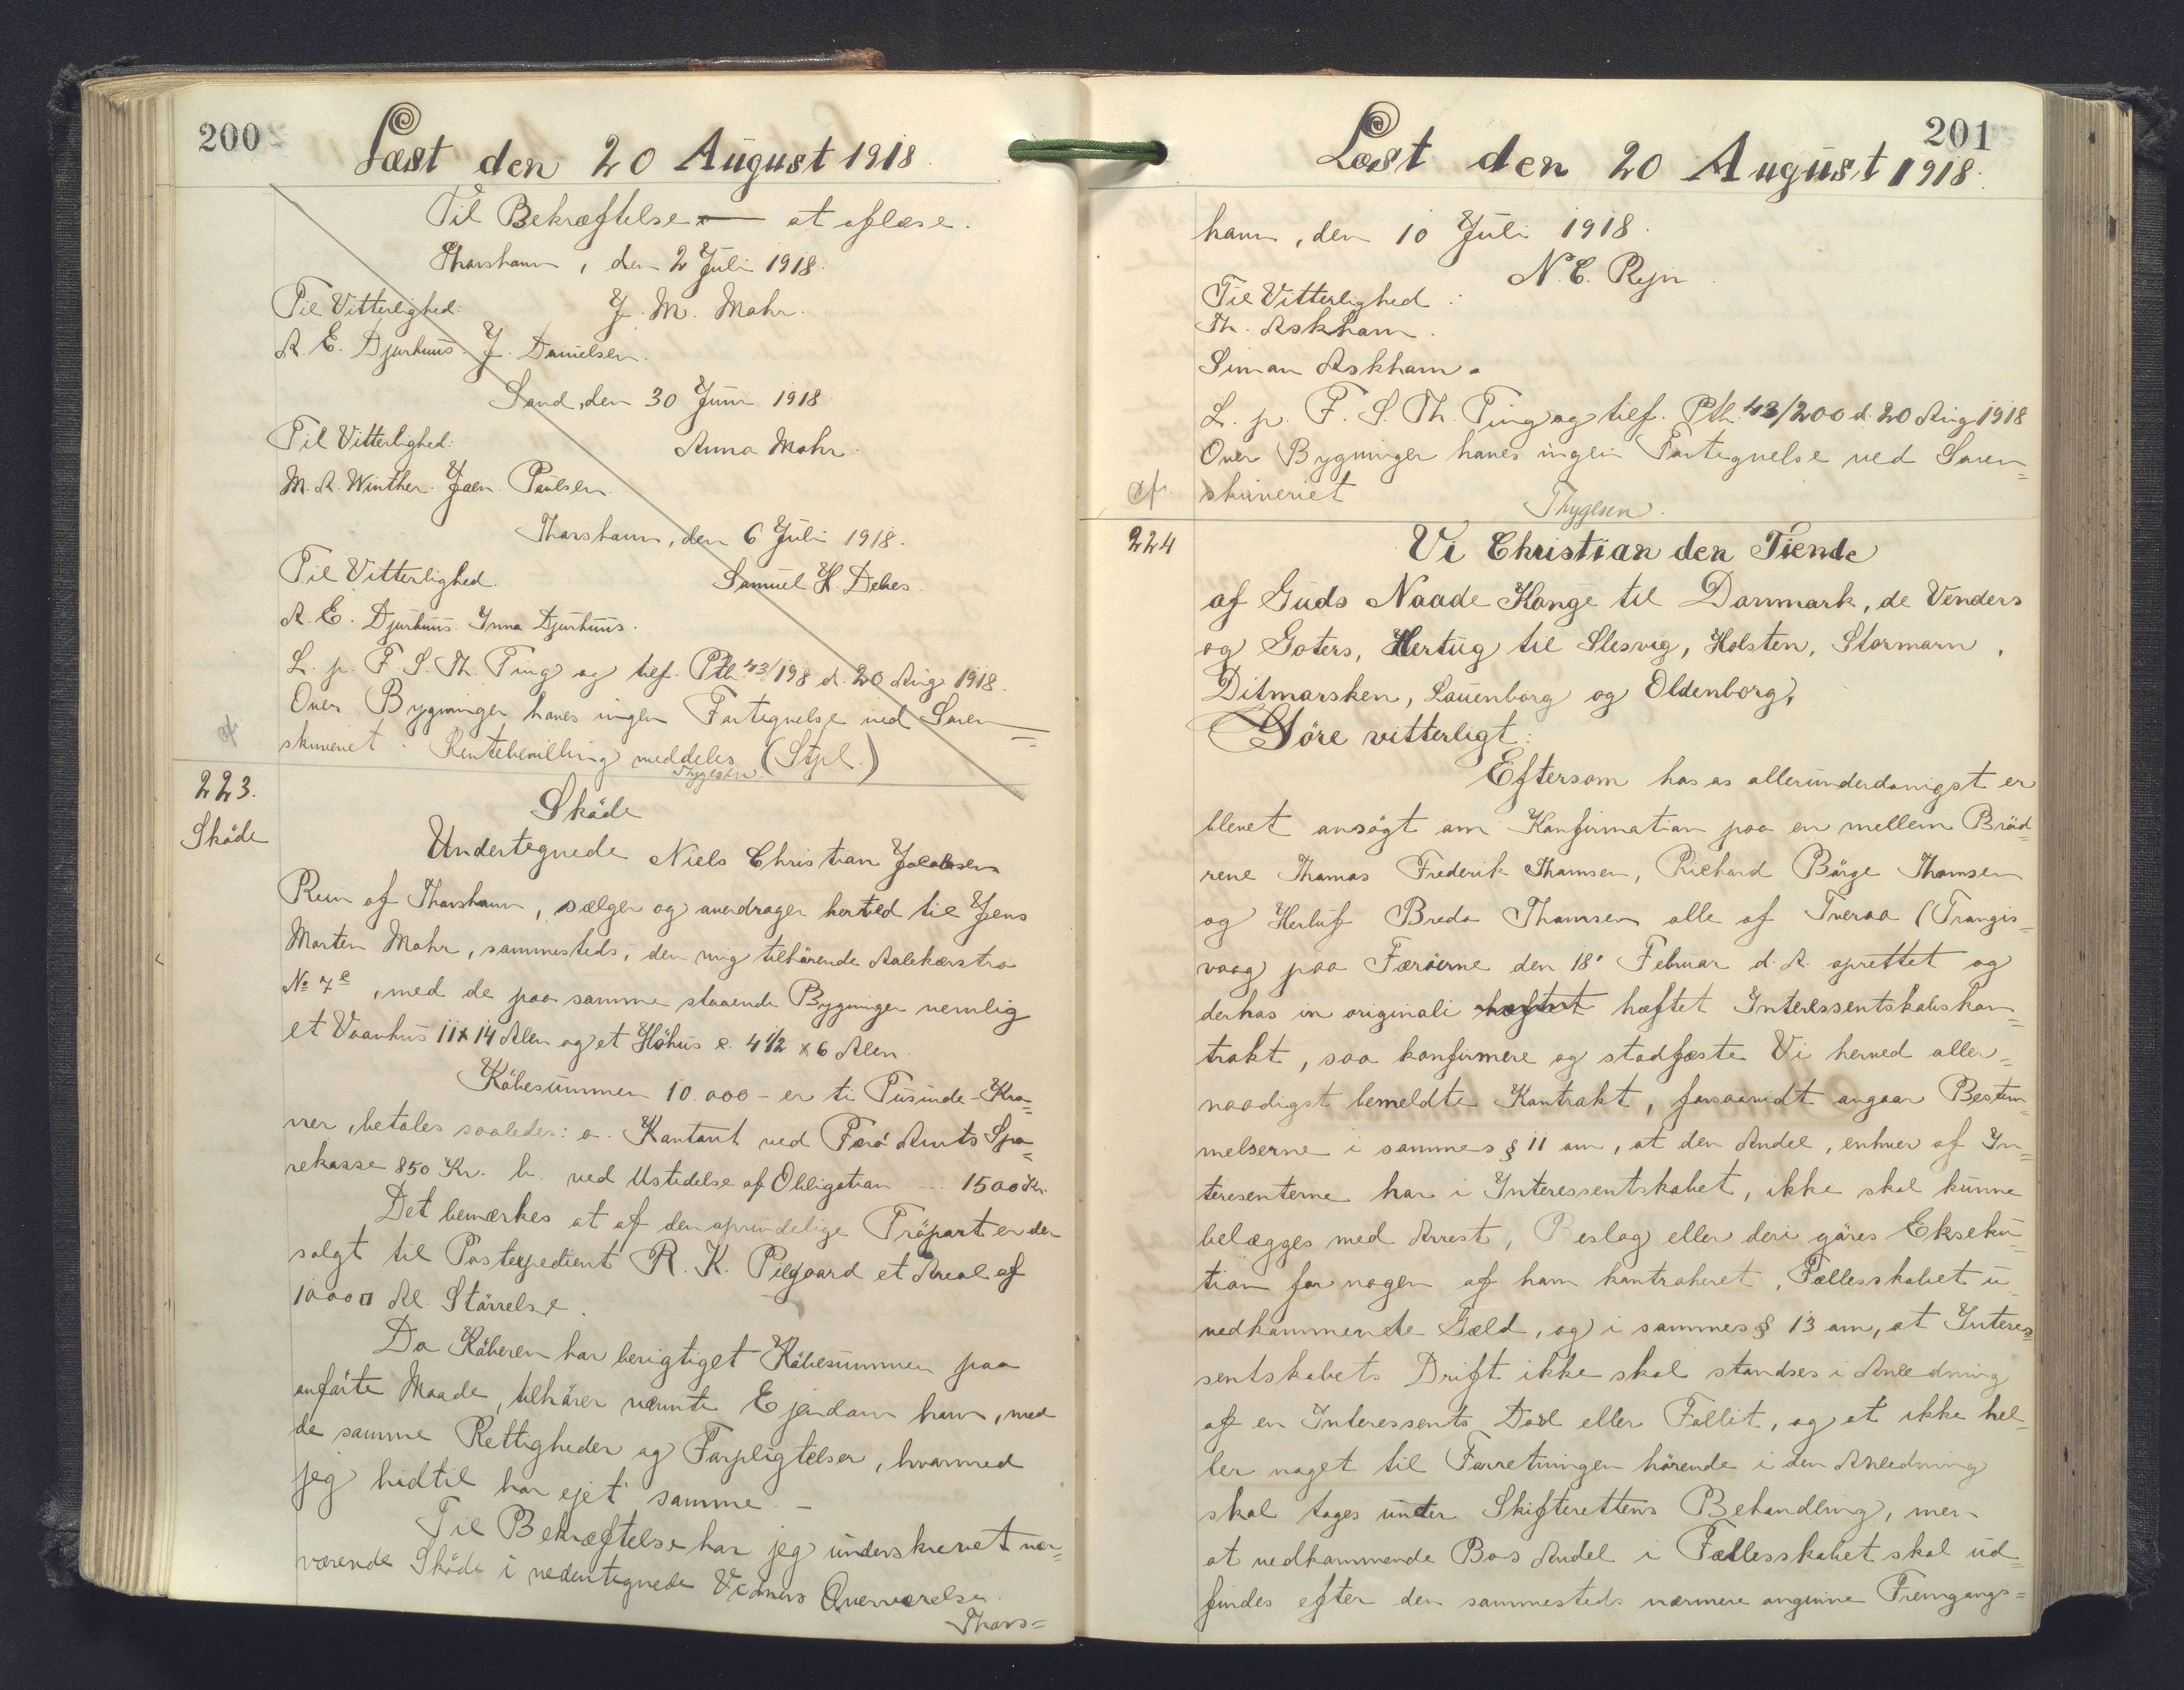 200
Læst den 20 August 1918.
Til Bekræftelse — at aflæse.
Thorshavn, den 2 Juli 1918.
Til Vitterlighed: J. M. Mohr.
A. E. Djurhuus. J. Danielsen.
Sand, den 30 Juni 1918
Til Vitterlighed: Anna Mohr.
M. A. Winther. Joen Poulsen.
Thorshavn, den 6 Juli 1918.
Til Vitterlighed. Samuel H. Debes.
A. E. Djurhuus. Inna Djurhuus.
L. p. F. S. Th. Ting og tilf. Ptb. 43/198 d. 20 Aug 1918.
Over Bygninger haves ingen Fortegnelse ved Soren=
skriveriet. Rentebevilling meddeles (Stpl.)
Thygesen.
223.
Skøde
Skøde
Undertegnede Niels Christian Jacobsen
Rein af Thorshavn, sælger og overdrager herved til Jens
Morten Mohr, sammesteds, den mig tilhørende Aalekærstrø
No 7e, med de paa samme staaende Bygninger nemlig
et Vaanhus 11 x 14 Alen og et Høhus c. 4 1/2 x 6 Alen.
Købesummen 10.000 - er ti Tusinde - Kro=
ner, betales saaledes: a. Kontant ved Færø Amts Spa=
rekasse 850 Kr. b. ved Ustedelse af Obligation ... 1500 Kr.
Det bemærkes at af den oprindelige Trøpart er der
solgt til Postexpedient R. K. Pilgaard et Areal af
1000 □ Al. Størrelse.
Da Køberen har berigtiget Købesummen paa
anførte Maade, tilhører nævnte Ejendom ham, med
de samme Rettigheder og Forpligtelser, hvormed
jeg hidtil har ejet samme. -
Til Bekræftelse har jeg underskrevet nær=
værende Skøde i nedentegnede Vidners Overværelse.
Thors=
201
Læst den 20 August 1918.
havn, den 10 Juli 1918.
N. C. Rejn
Til Vitterlighed:
Th. Askham.
Simon Askham.
L. p. F. S. Th. Ting og tilf. Ptb. 43/200 d. 20 Aug 1918
Over Bygninger haves ingen Fortegnelse ved Soren=
skriveriet
Thygesen.
224
Vi Christian den Tiende
af Guds Naade Konge til Danmark, de Venders
og Goters, Hertug til Slesvig, Holsten, Stormarn,
Ditmarsken, Lauenborg og Oldenborg,
Gøre vitterligt:
Eftersom hos os allerunderdanigst er
blevet ansøgt om Konfirmation paa en mellem Brød=
rene Thomas Frederik Thomsen, Richard Børge Thomsen
og Herluf Breda Thomsen alle af Tveraa (Trangis=
vaag) paa Færøerne den 18' Februar d. A. oprettet og
derhos in originali hæftet hæftet Interessentskabskon=
trakt, saa konfirmere og stadfæste Vi herved aller=
naadigst bemeldte Kontrakt, forsaavidt angaar Bestem=
melserne i sammes § 11 om, at den Andel, enhver af In=
teresenterne har i Interessentskabet, ikke skal kunne
belægges med Arrest, Beslag eller deri gøres Ekseku=
tion for nogen af ham kontraheret, Fællesskabet u=
vedkommende Gæld, og i sammes § 13 om, at Interes=
sentskabets Drift ikke skal standses i Anledning
af en Interessents Død eller Fallit, og at ikke hel=
ler noget til Forretningen hørende i den Anledning
skal tages under Skifterettens Behandling, men
at vedkommende Bos Andel i Fællesskabet skal ud=
findes efter den sammesteds nærmere angivne Fremgangs=